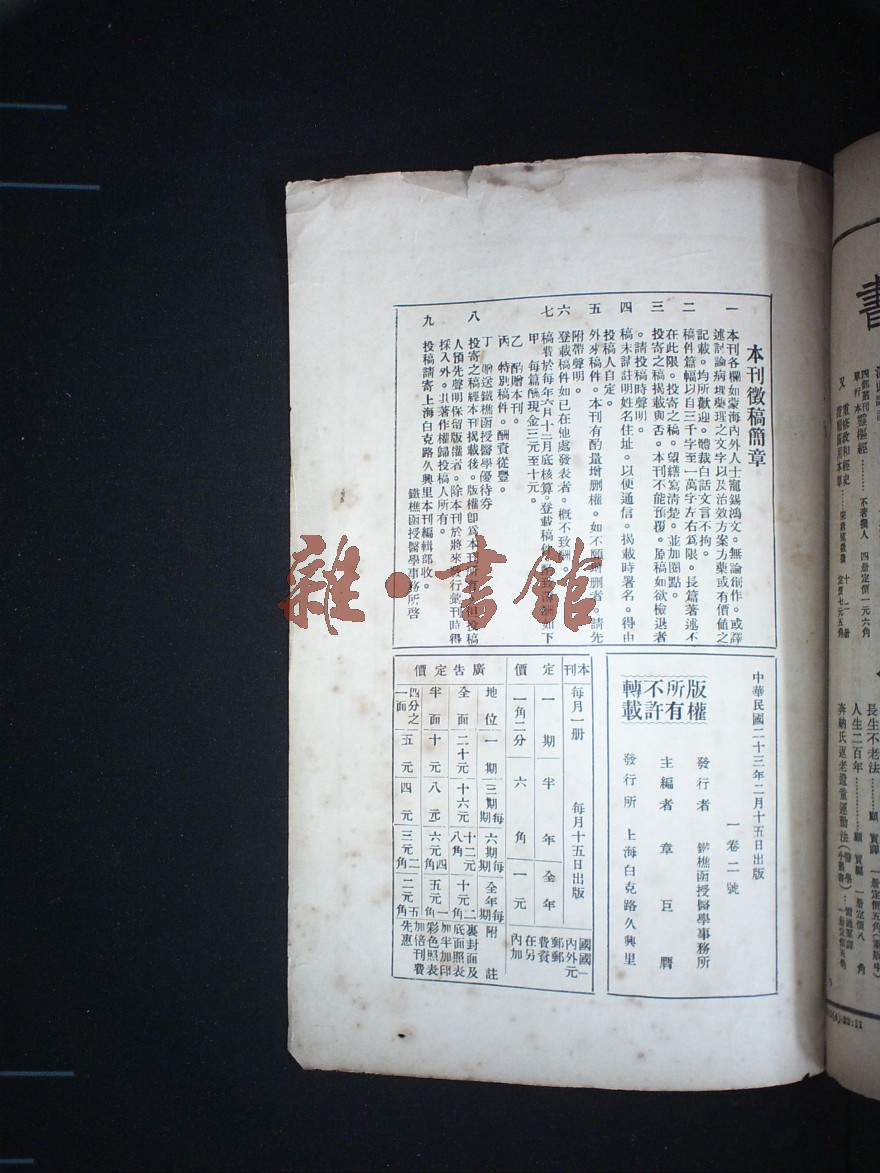 本刊徵稿簡章
一 本刊各欄如蒙海內外人士寵錫鴻文。無論創作。或譯
述討論病理藥理之文字以及治效方案方藥或有價值之
記載。均所歡迎。體裁白話文言不拘。
二 稿件篇幅以自三千字至一萬字左右爲限。長篇著述不
在此限。投寄之稿。望繕寫清楚。並加圈點。
三 投寄之稿揭載與否。本刊不能預覆。原稿如欲檢退者
。請投稿時聲明。
四 稿末請註明姓名住址。以便通信。揭載時署名。得由
投稿人自定。
五 外來稿件。本刊有酌量增删權。如不願增删者。請先
附帶聲明。
六 登載稿件如已在他處發表者。概不致酬。
七 稿費於每年六月十二月底核算。登載稿件 如下
甲 每篇酬現金三元至十元。
乙 酌贈本刊。
丙 特別稿件。酬資從豐。
丁 贈送鐵樵函授醫學優待券
八 投寄之稿經本刊揭載後。版權卽爲本刊所有。但投稿
人預先聲明保留版權者。除本刊於將來發行彙刊時得
採入外。其著作權歸投稿人所有。
九 投稿請寄上海白克路久興里本刊編輯部收。
鐵樵函授醫學事務所啓
中華民國二十三年二月十五日出版
一卷二號
版權所有不許轉載
發行者 鐵樵函授醫學事務所
主編者 章巨膺
發行所 上海白克路久興里
本刊定價
每月一册 每月十五日出版
一期 半年 全年
一角二分 六角 一元
國內郵費在內
國外郵資另加
廣告定價
地位 一期 三期每期 六期每期 全年每期 附註
全面 二十元 十六元 十二元八角 十元二角
半面 十元 八元 六元四角 五元一角
四分之一面 五元 四元 三元二角 二元五角
裏封面及底面照表加半加印彩色照表加倍刊費先惠
雜·書館
書
四部叢刊單行本 靈樞經 不著撰人 四册定價一元六角
又 重修政和經史證類備用本草 十二册 定價七元五角
長生不老法 顧實譯 一册定價五角
人生二百年 顧實編 一册定價八角